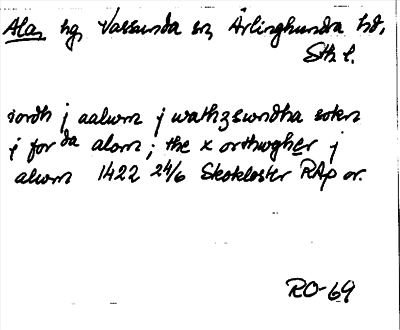 Ala, hg, Vassunda sn, Ärlinghundra hd,
Sth l.
iordh j aalwm j wathzswndha sokn
j for da alom; the x orthwgher j
alwm 1422 24/6 Skokloster RAp or.
RO-69